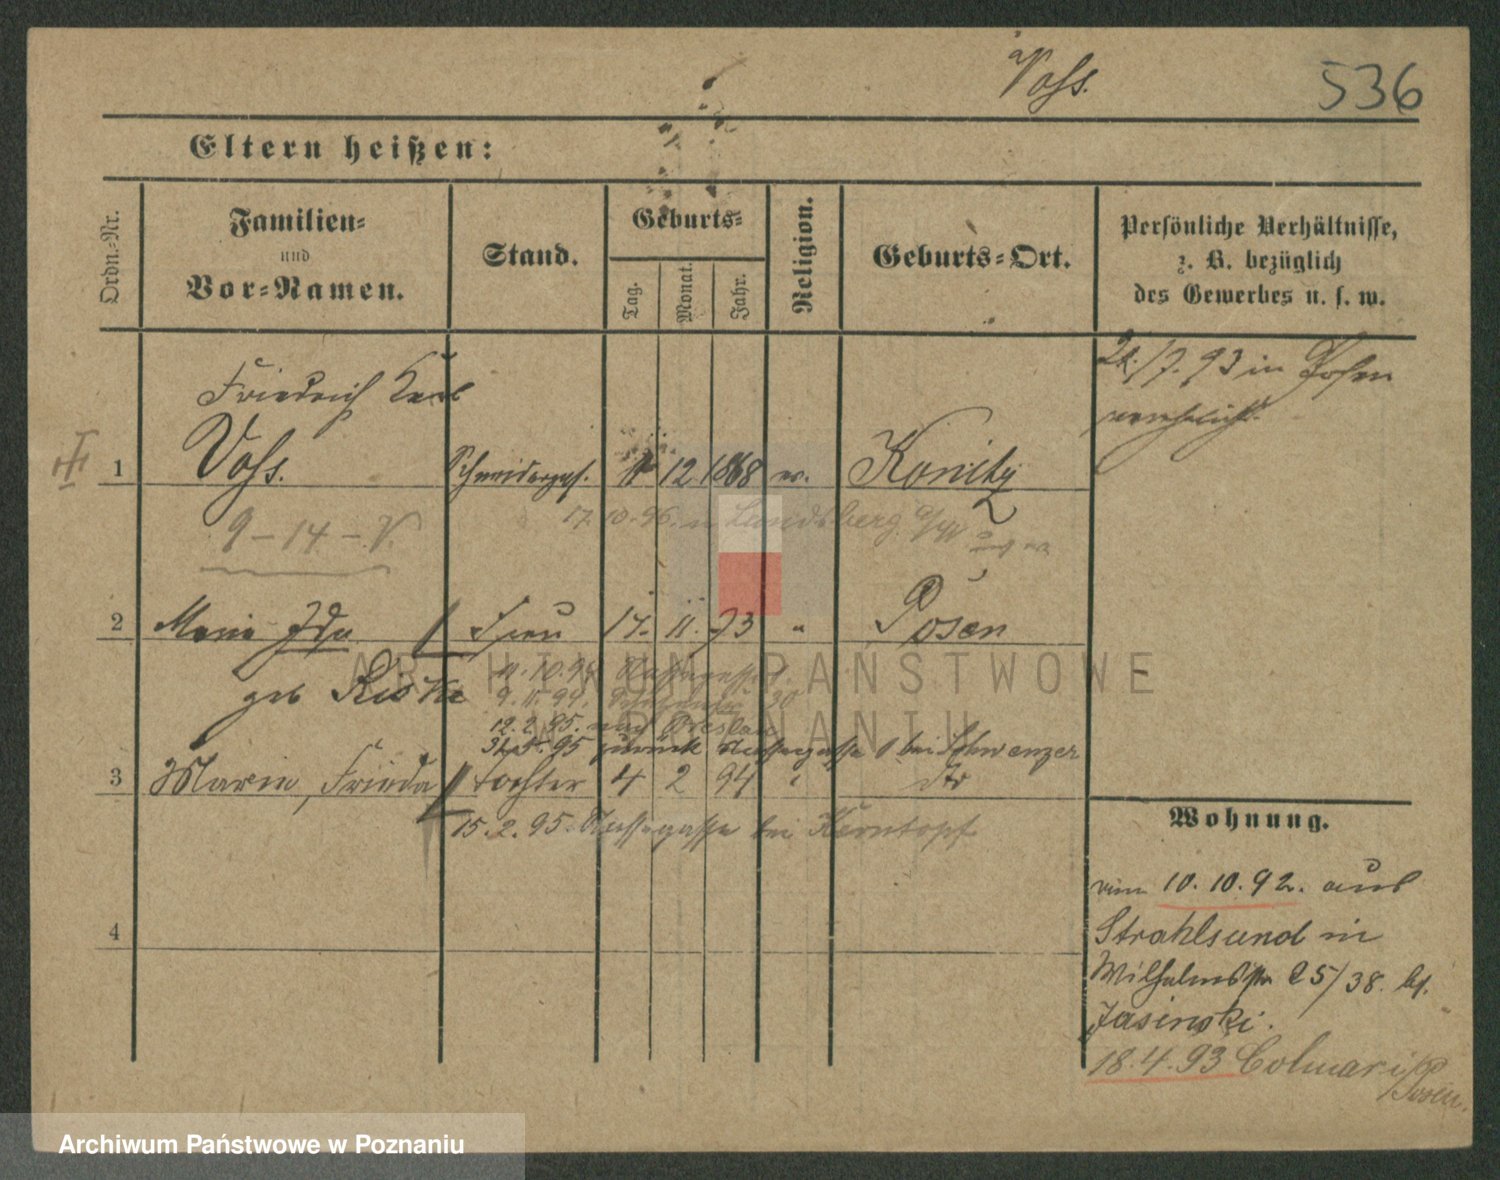 Voss.
536
Eltern heißen:
Ordn.-Nr.
Familien-
und
Vor-Namen.
Stand.
Geburts-
Tag.
Monat.
Jahr.
Religion.
Geburts-Ort.
Persönliche Verhältnisse,
z. B. bezüglich
des Gewerbes u. s. w.
Friedrich Karl
1 Voss. Schneiderges. 12. 1868 ev. Konitz
/7. 93 in Posen
verehelicht.
9 - 14 - V.
17.10.96. n Landsberg a/W
2 Marie Ida Frau 17. 11. 73 " Posen
geb Riske
9. 11. 94.
12. 2. 95. nach Breslau
31. 5. 95 zurück bei Schwenzer
3 Marie, Frieda Tochter 4 2 94 "
15. 2. 95. bei Kerntopf
4
Wohnung.
vom 10. 10. 92. aus
Strahlsund in
Wilhelmstr 25/38. bei
Jasinski.
18. 4. 93 Colmar i/Posen.
ARCHIWUM PAŃSTWOWE
W POZNANIU
Archiwum Państwowe w Poznaniu